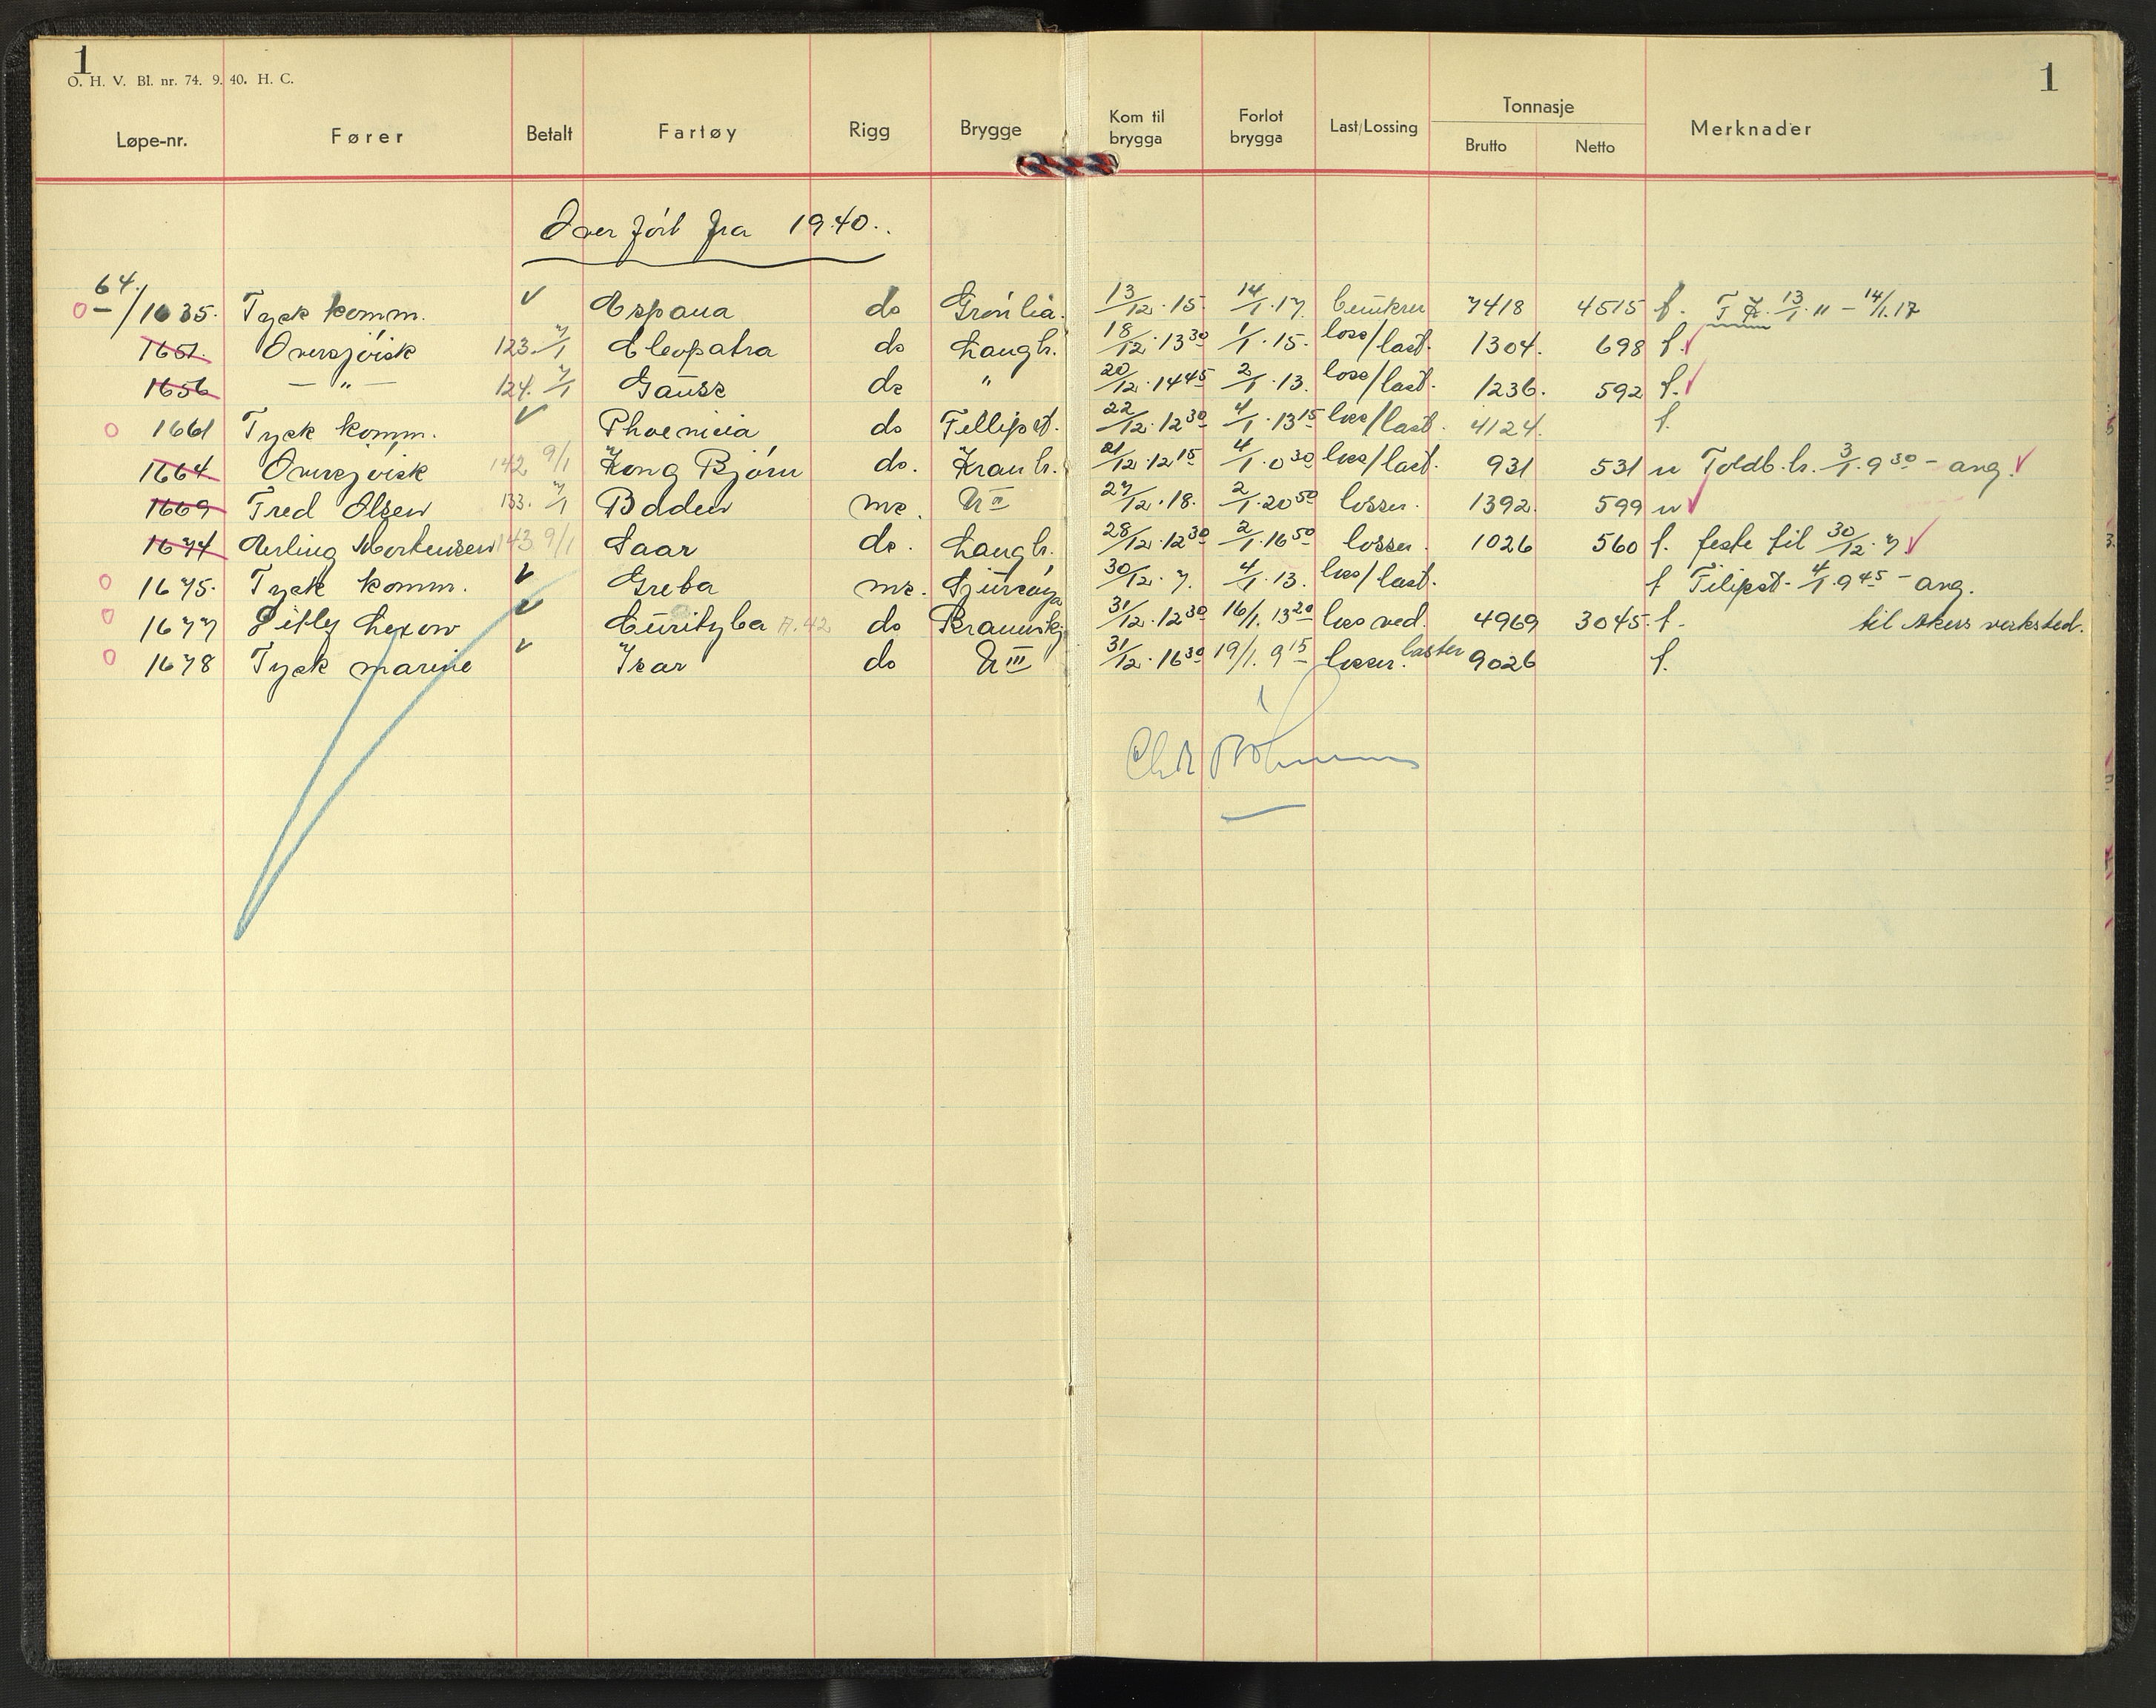 1 1
O. H. V. Bl. nr. 74. 9. 40. H. C.
Løpe-nr. Fører Betalt Fartøy Rigg Brygge Kom til brygga Forlot brygga Last/Lossing Tonnasje Brutto Netto Merknader
Overført fra 1940.
64/1035. Tysk komm. ✓ Espana do Grønlia. 13/12.15. 14/1.17. bunkrer 7418 4515 f. 13/1.11 – 14/1.17
1651. Oversjøisk 123. 7/1 Cleopatra do Langb. 18/12.13 30 1/1.15. loss/last. 1304. 698 f. ✓
1656 — " — 124. 7/1 Gauss do " 20/12.14 45 2/1.13. loss/last. 1236. 592 f. ✓
1661 Tysk komm. ✓ Phoenicia do Fillipst. 22/12.12 30 4/1.13 15 loss/last. 4124. f.
1664 Oversjøisk 142 9/1 Kong Bjørn do. Kranb. 21/12.12 15 4/1.0 30 loss/last. 931 531 n Toldb.b. 3/1.9 30 – ang. ✓
1669 Fred Olsen 133. 7/1 Bodden ms. U II 27/12.18. 2/1.20 50 losser. 1392. 599 n ✓
1674 Erling Mortensen 143 9/1 Saar do. Langb. 28/12.12 30 2/1.16 50 losser. 1026 560 f. feste til 30/12.7 ✓
1675. Tysk komm. ✓ Greba ms. Sjursøya 30/12.7. 4/1.13. loss/last. f Filipst. 4/1.9 45 – ang.
1677 Ditlev Lexow ✓ Curityba A.42 do Kravnskj 31/12.12 30 16/1.13 20 loss ved. 4969 3045. f. til Akers verksted.
1678 Tysk marine ✓ Isar do U III 31/12.16 30 19/1.9 15 losser. laster 9026 f.